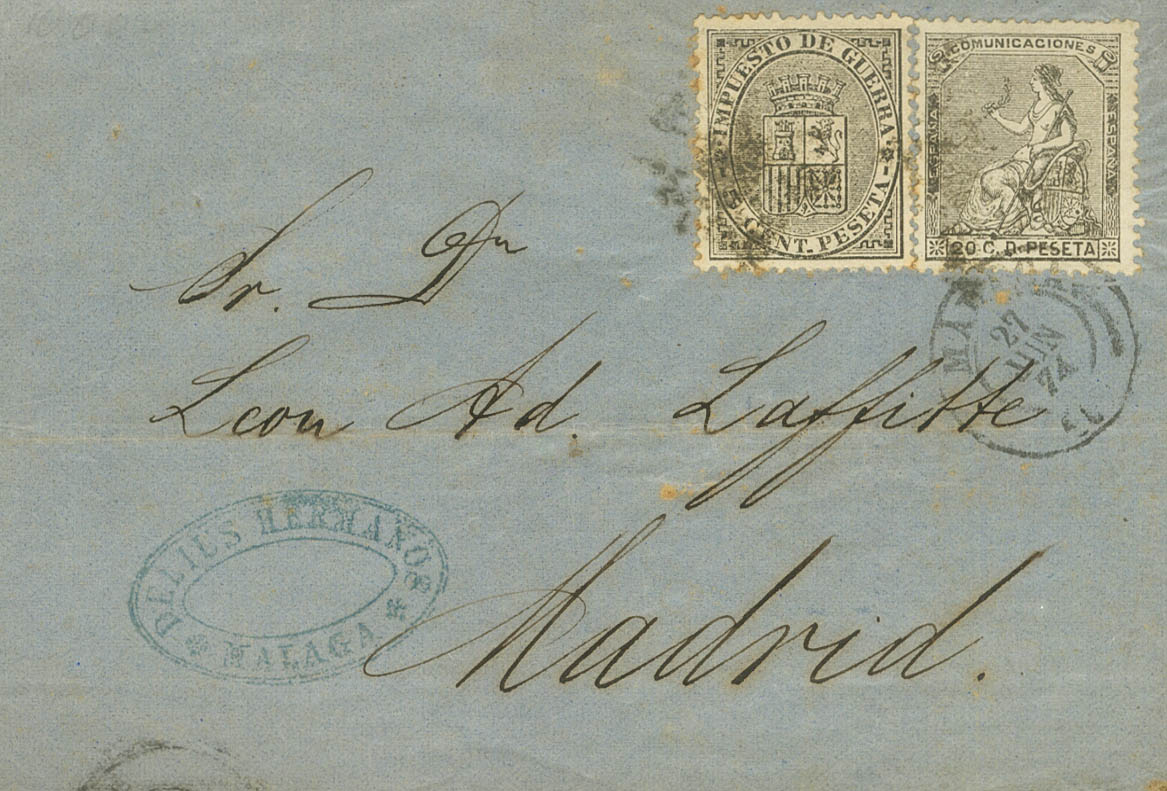 IMPUESTO DE GUERRA
5 CENT. PESETA
COMUNICACIONES
ESPAÑA
ESPAÑA
20 C. D. PESETA
Sr. Dn
27
JUN
74
Leon Ad. Laffitte
DELIUS HERMANOS
MALAGA
Madrid.